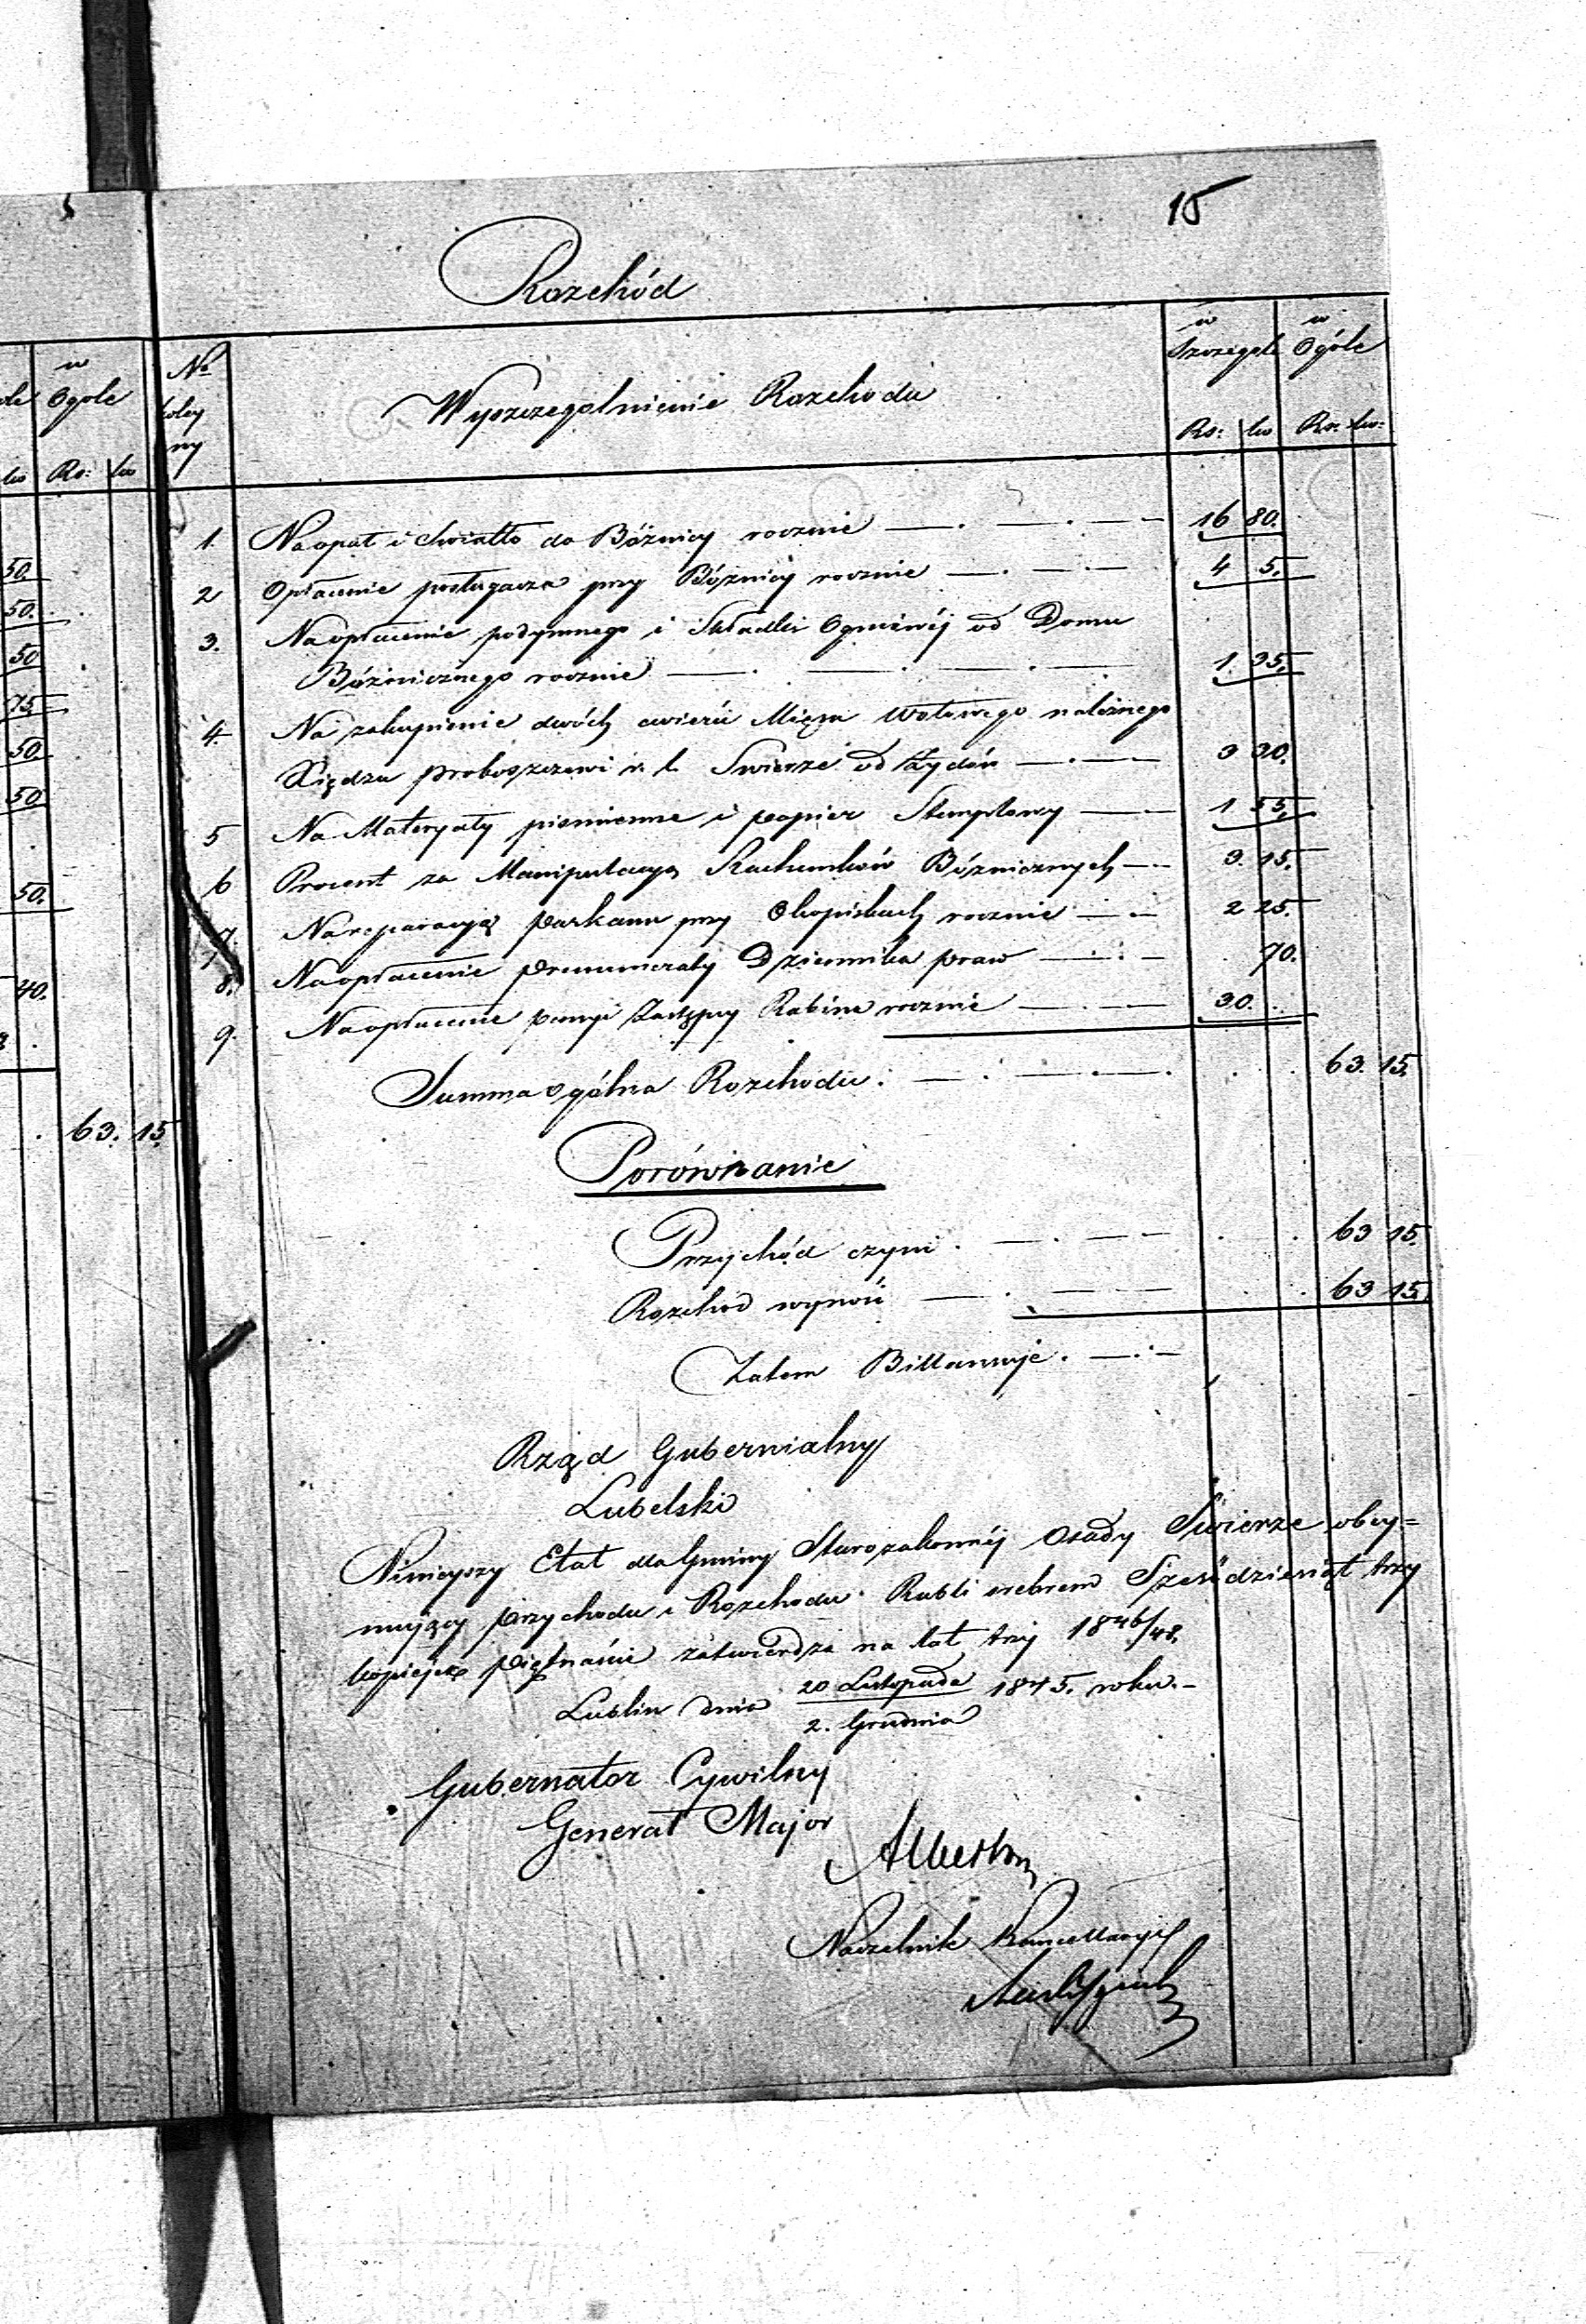 15
Rozchód
w
Ogóle
Rs: ko
No
koley
ny
Wyszczególnienie Rozchodu
w
Szczegole
Rs: ko
w
Ogóle
Rs: ko:
1. Na opał i światło do Bóżnicy rocznie 16 80.
2 Opłacenie posługacza przy Bóżnicy rocznie 4 5.
3. Na opłacenie podymnego i Składki Ogniowéj od Domu
Bóżnicznego rocznie 1. 35.
4. Na zakupienie dwóch ćwierci Mięsa Wołowego należnego
Xiędzu Proboszczowi r. l. Swierże od Żydów 3 30.
5 Na Materyały piśmienne i papier Stemplowy 1 55.
6 Procent za Manipulacyą Rachunków Bóżnicznych 3. 15.
7. Na reparacyją Parkanu przy Okopiskach rocznie 2 25.
8. Na opłacenie Prenumeraty Dziennika praw 70.
9. Na opłacenie pensyi Zastępcy Rabina rocznie 30.
Summa ogólna Rozchodu: 63. 15.
50.
50.
50
75.
50.
50
50.
40.
63. 15.
Porównanie
Przychód czyni 63 15.
Rozchód wynosi 63 15.
Zatem Billansuje.
Rząd Gubernialny
Lubelski
Ninieyszy Etat dla Gminy Starozakonnéj Osady Świerze obey=
mujący Przychodu i Rozchodu Rubli srebrem Sześćdziesiąt trzy
kopiejek Piętnaście zatwierdza na lat trzy 1846/48.
Lublin dnia 20 Listopada / 2. Grudnia 1845. roku.-
Gubernator Cywilny
Generał Major
Albertow
Naczelnik Kancellaryi